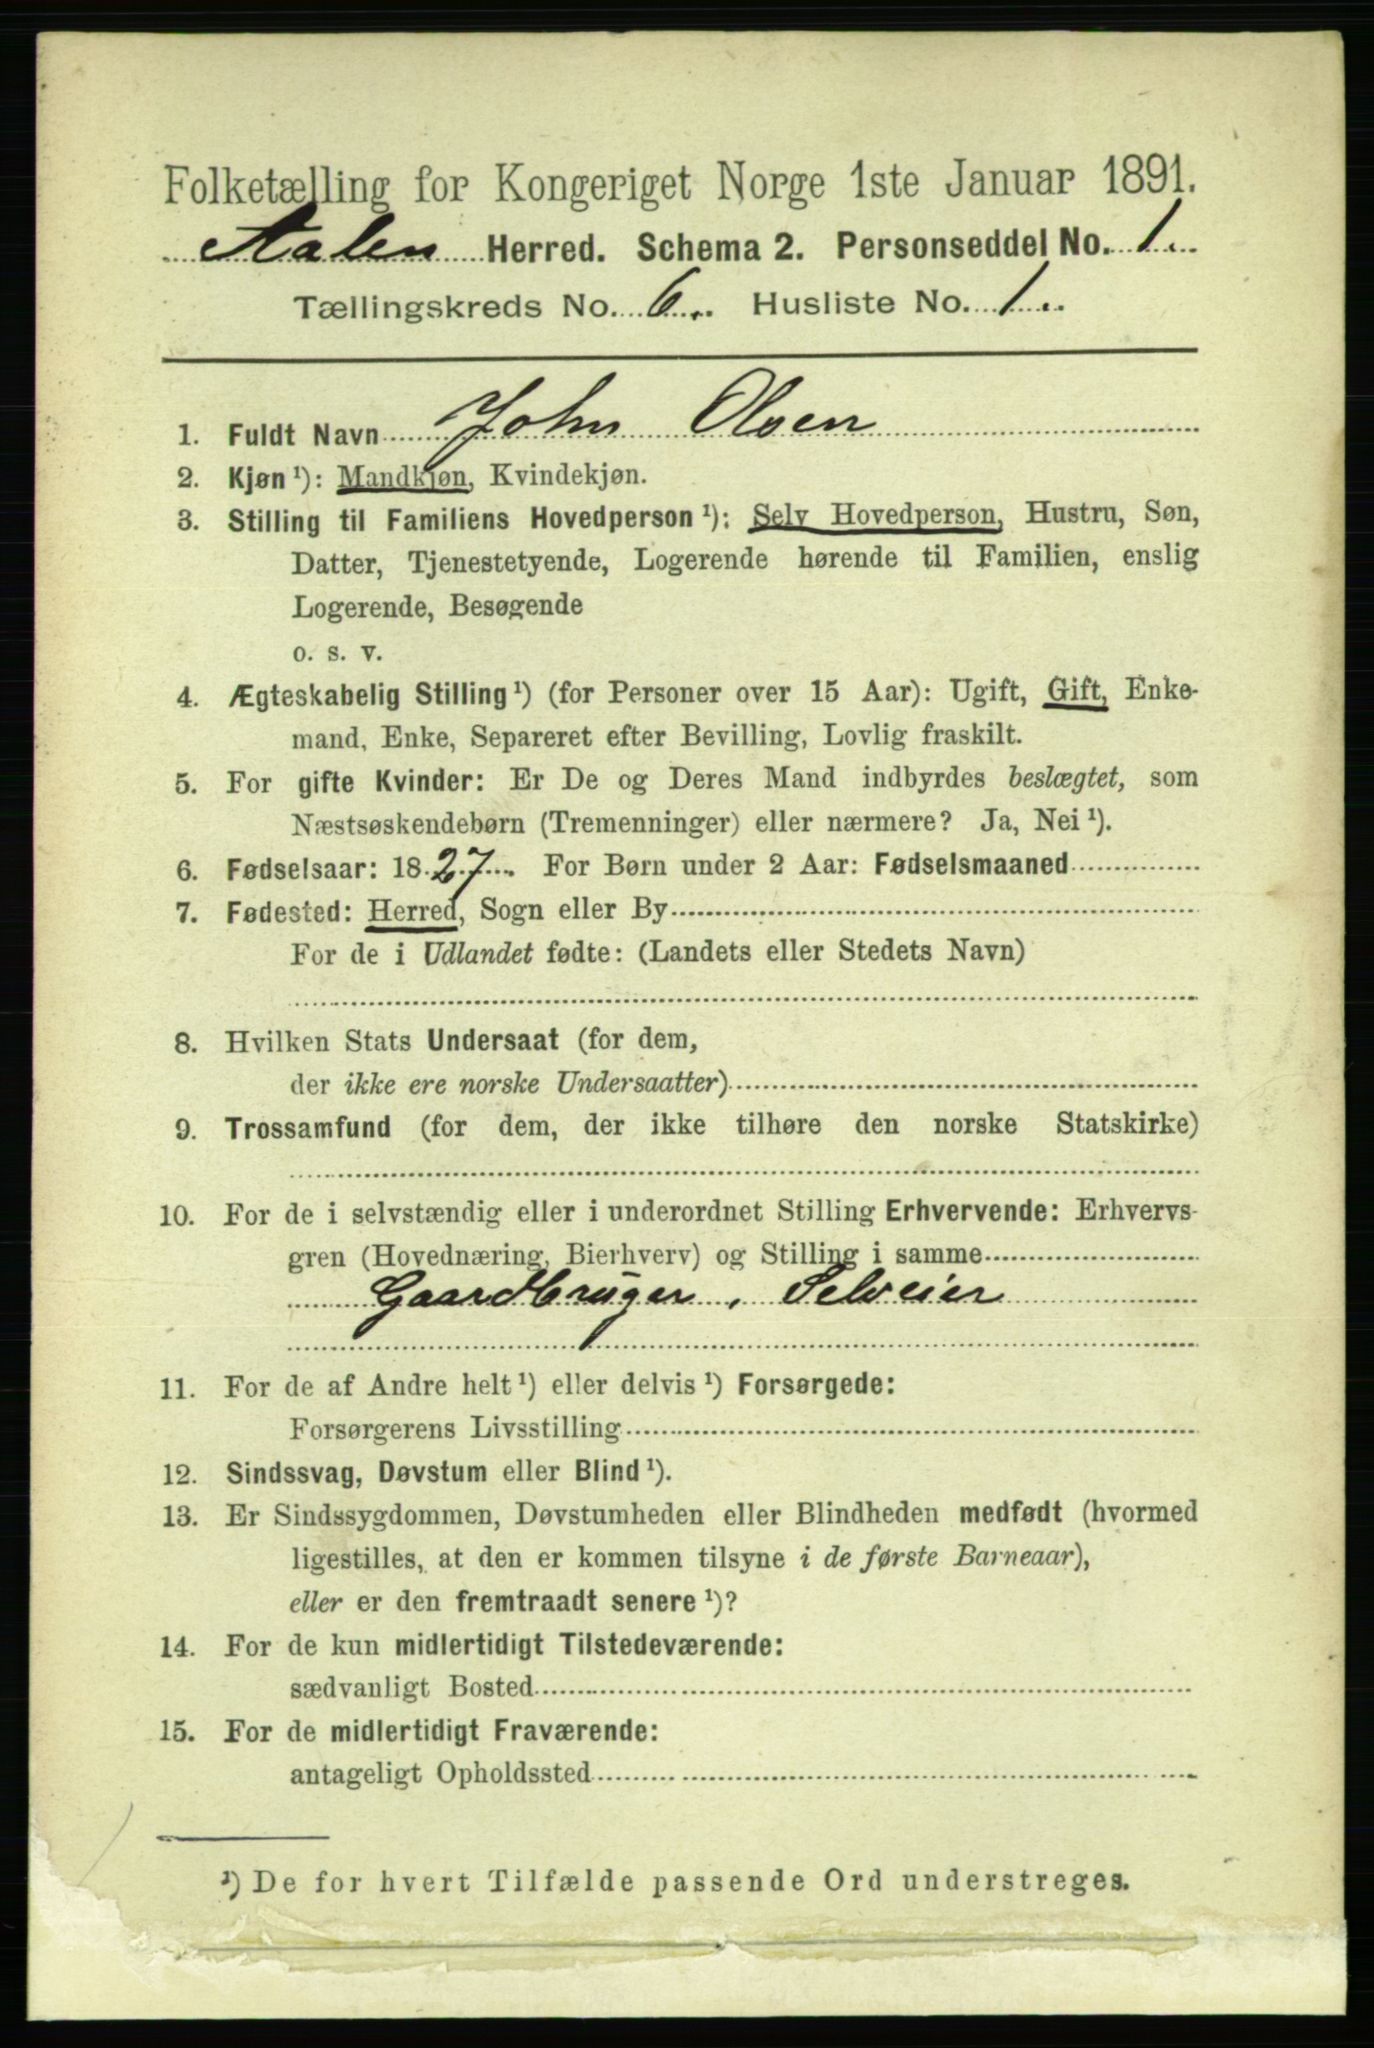 Folketælling for Kongeriget Norge 1ste Januar 1891.
Aalen Herred. Schema 2. Personseddel No. 1.
Tællingskreds No. 6. Husliste No. 1.
1. Fuldt Navn John Olsen
2. Kjøn ¹): Mandkjøn, Kvindekjøn.
3. Stilling til Familiens Hovedperson ¹): Selv Hovedperson, Hustru, Søn,
Datter, Tjenestetyende, Logerende hørende til Familien, enslig
Logerende, Besøgende
o. s. v.
4. Ægteskabelig Stilling ¹) (for Personer over 15 Aar): Ugift, Gift, Enke-
mand, Enke, Separeret efter Bevilling, Lovlig fraskilt.
5. For gifte Kvinder: Er De og Deres Mand indbyrdes beslægtet, som
Næstsøskendebørn (Tremenninger) eller nærmere? Ja, Nei ¹).
6. Fødselsaar: 1827. For Børn under 2 Aar: Fødselsmaaned
7. Fødested: Herred, Sogn eller By
For de i Udlandet fødte: (Landets eller Stedets Navn)
8. Hvilken Stats Undersaat (for dem,
der ikke ere norske Undersaatter)
9. Trossamfund (for dem, der ikke tilhøre den norske Statskirke)
10. For de i selvstændig eller i underordnet Stilling Erhvervende: Erhvervs-
gren (Hovednæring, Bierhverv) og Stilling i samme
Gaardbruger, Selveier
11. For de af Andre helt ¹) eller delvis ¹) Forsørgede:
Forsørgerens Livsstilling
12. Sindssvag, Døvstum eller Blind ¹).
13. Er Sindssygdommen, Døvstumheden eller Blindheden medfødt (hvormed
ligestilles, at den er kommen tilsyne i de første Barneaar),
eller er den fremtraadt senere ¹)?
14. For de kun midlertidigt Tilstedeværende:
sædvanligt Bosted
15. For de midlertidigt Fraværende:
antageligt Opholdssted
¹) De for hvert Tilfælde passende Ord understreges.